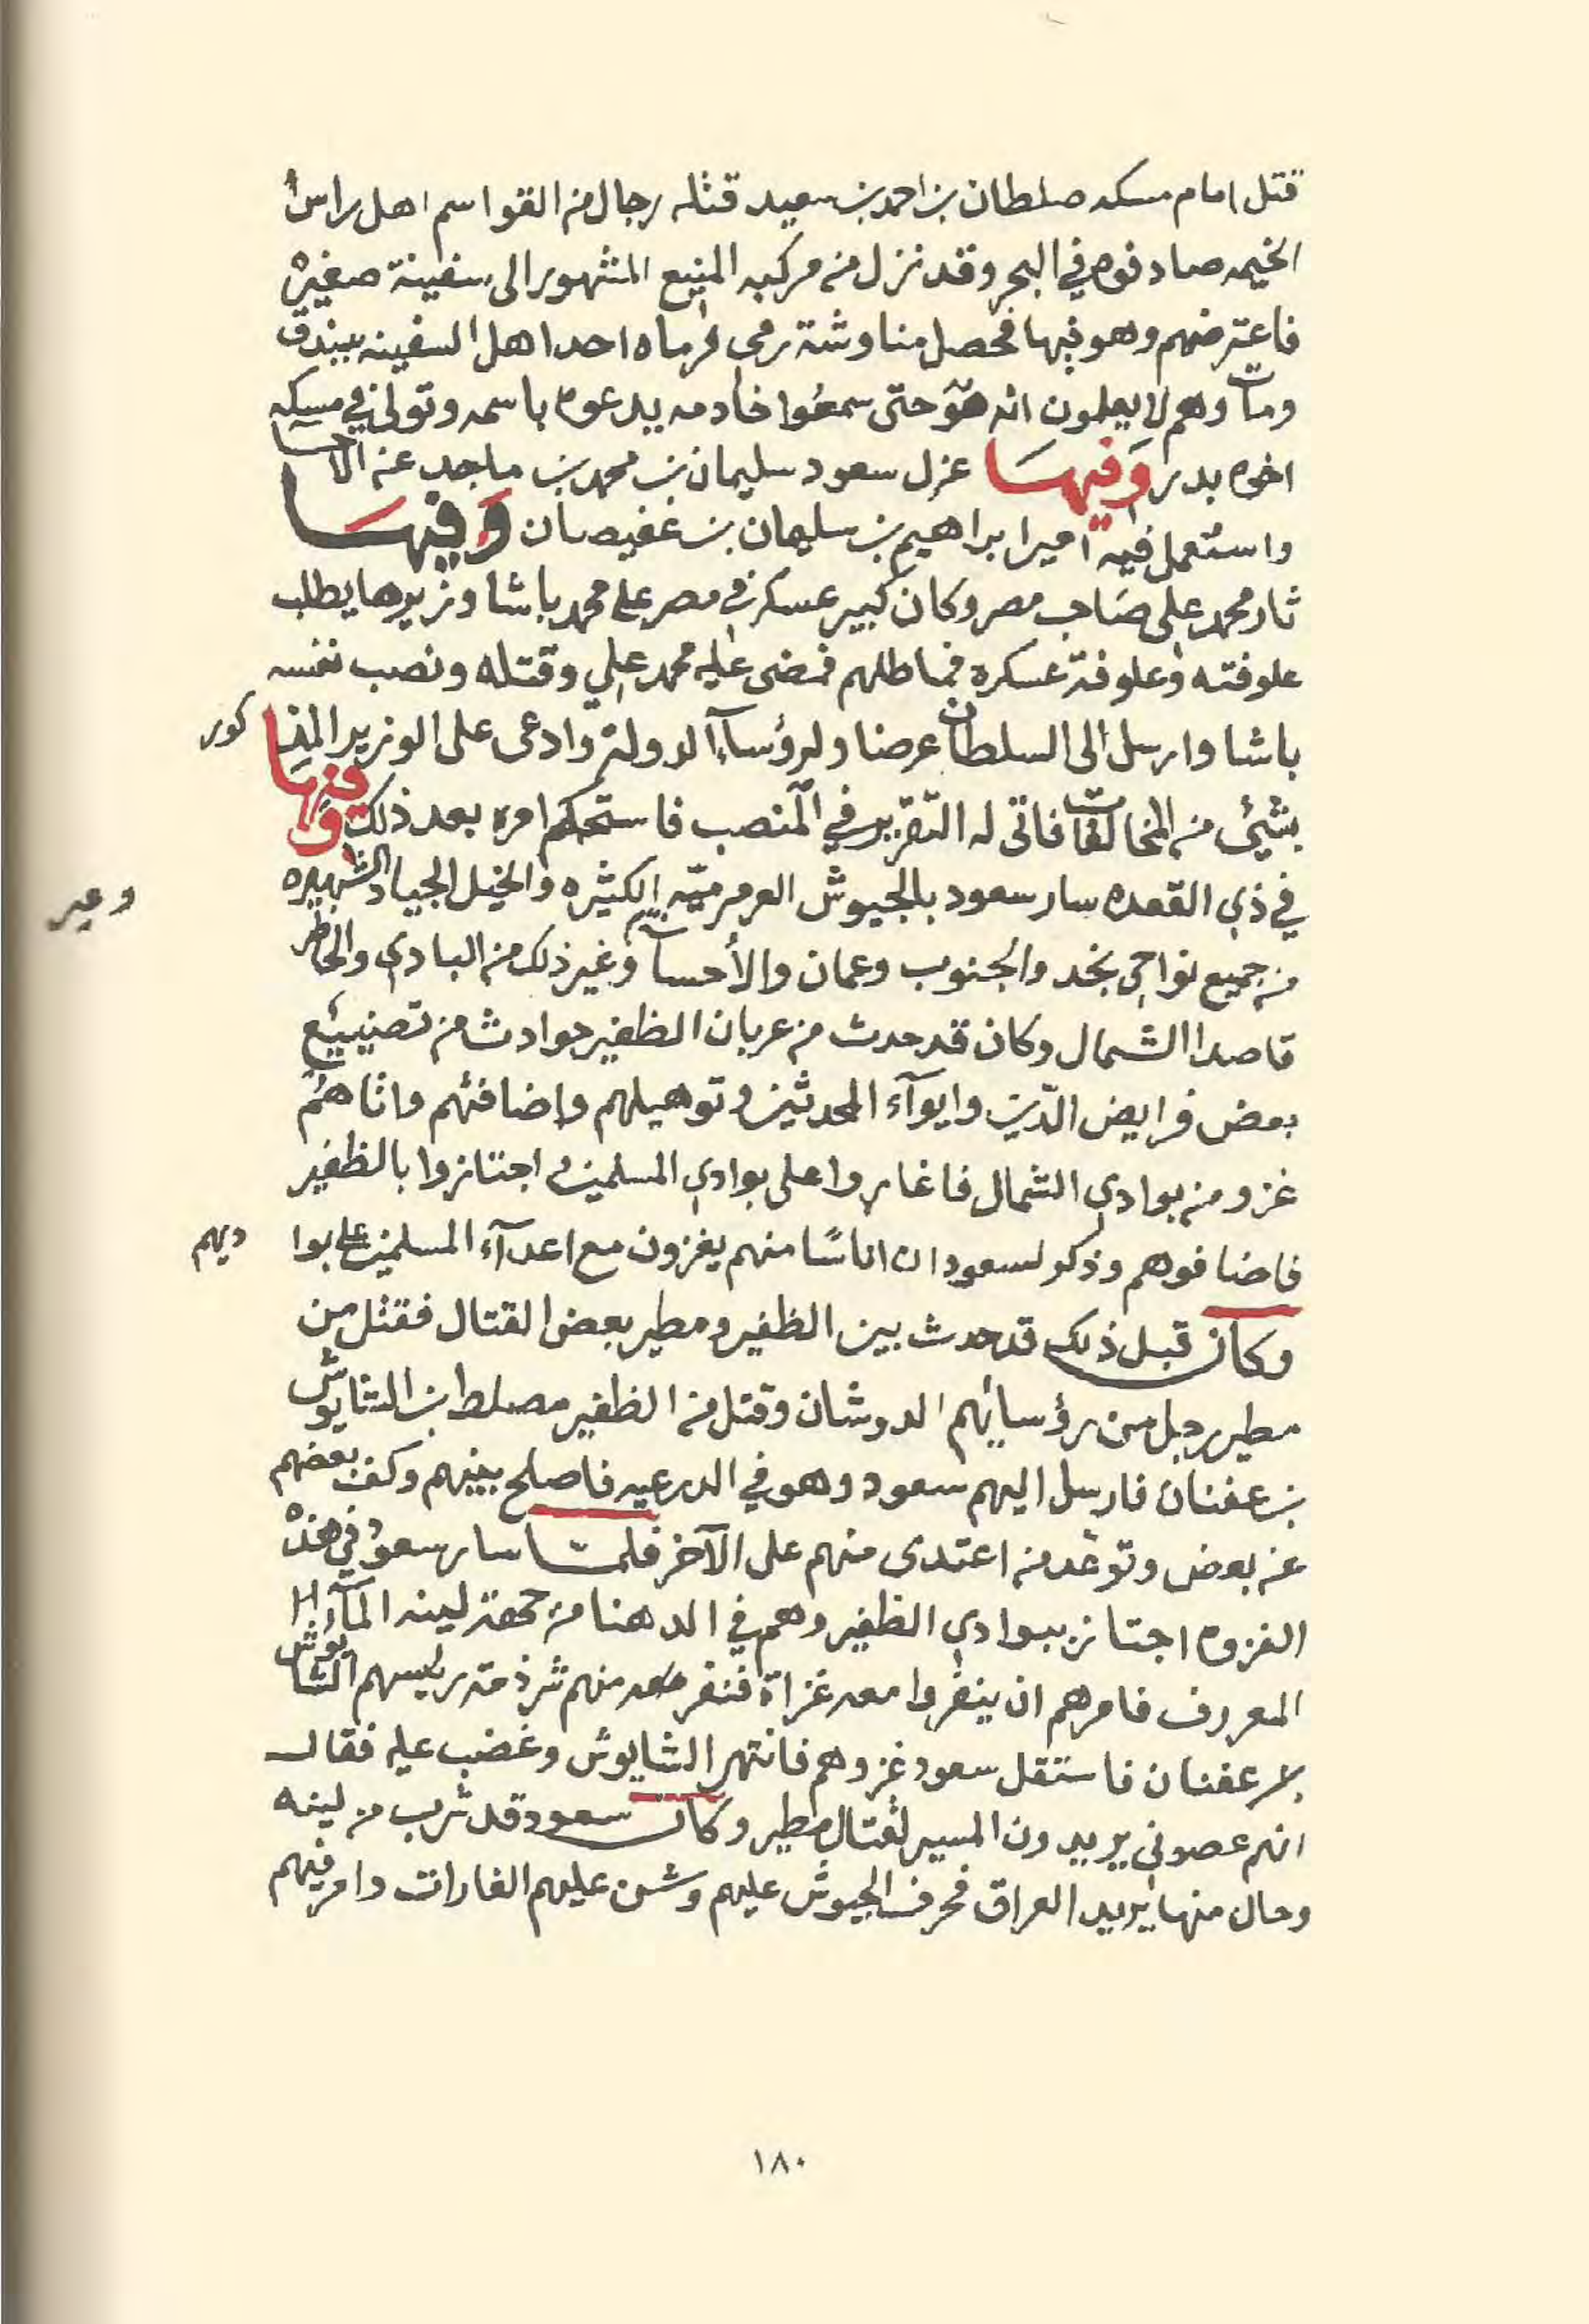 قتل امام مسكه صلطان بن احمد بن سعيد قتله رجال من القواسم اهل راس
الخيمه صادفوه في البحر وقد نزل من مركبه المنيع المشهور الى سفينة صغيرة
فاعترضهم وهو فيها فحصل مناوشة رمى فرماه احد اهل السفينه ببندق
ومات وهم لا يعلمون انه هو حتى سمعوا خادمه يدعوه باسمه وتولى في مسكه
اخوه بدر وَفيهَا عزل سعود سليمان بن محمد بن ماجد عن الاحسا
واستعمل فيه اميرا براهيم بن سليمان بن غفيصان وَفيهَا
ثار محمد علي صَاحب مصر وكان كبير عسكر في مصر على محمد باشا وزيرها يطلب
علوفته وعلوفة عسكره فماطلهم فمضى عليه محمد علي وقتله ونصب نفسه
باشا وارسل الى السلطان عرضا ولرؤسآء الدولة وادعى على الوزير المذكور
بشيئ من المخالفات فاتى له التقرير في المنصب فاستحكم امره بعد ذلك وفيها
في ذي القعده سار سعود بالجيوش العرمرميّه الكثيره والخيل الجياد الشهيره
من جميع نواحي نجد والجنوب وعمان والأحسآ وغير ذلك من البادي والحاظر
وعير
قاصدا الشمال وكان قد حدث من عربان الظفير حوادث من تضييع
بعض فرايض الدّين وايوآء المحدثين وتوهيلهم وإضافتهم واتاهُم
غزو من بوادي الشمال فاغاروا على بوادي المسلمين واجتازوا بالظفير
فاضافوهم وذكر لسعود ان اناسًا منهم يغزون مع اعدآء المسلمين على بواديهم
وكان قبل ذلك قد حدث بين الظفير ومطير بعض القتال فقتل من
مطير رجل من رؤسايهم الدوشان وقتل من الظفير مصلط بن الشايوش
بن عفنان فارسل اليهم سعود وهو في الدرعيه فاصلح بينهم وكف بعضهم
عن بعض وتوعد من اعتدى منهم على الآخر فلمّا سار سعود في هذه
الغزوه اجتاز ببوادي الظفير وهم في الدهنا من جهة لينه المآء
المعروف فامرهم ان ينفروا معه غزاة فنفر معه منهم شرذمة رئيسهم الشايوش
بن عفنان فاستقل سعود غزوهم فانتهر الشايوش وغضب عليه فقال
انهم عصوني يريدون المسير لقتال مطير وكان سعود قد شرب من لينه
وحال منها يريد العراق فحرف الجيوش عليهم وشن عليهم الغارات وامر فيهم
١٨٠